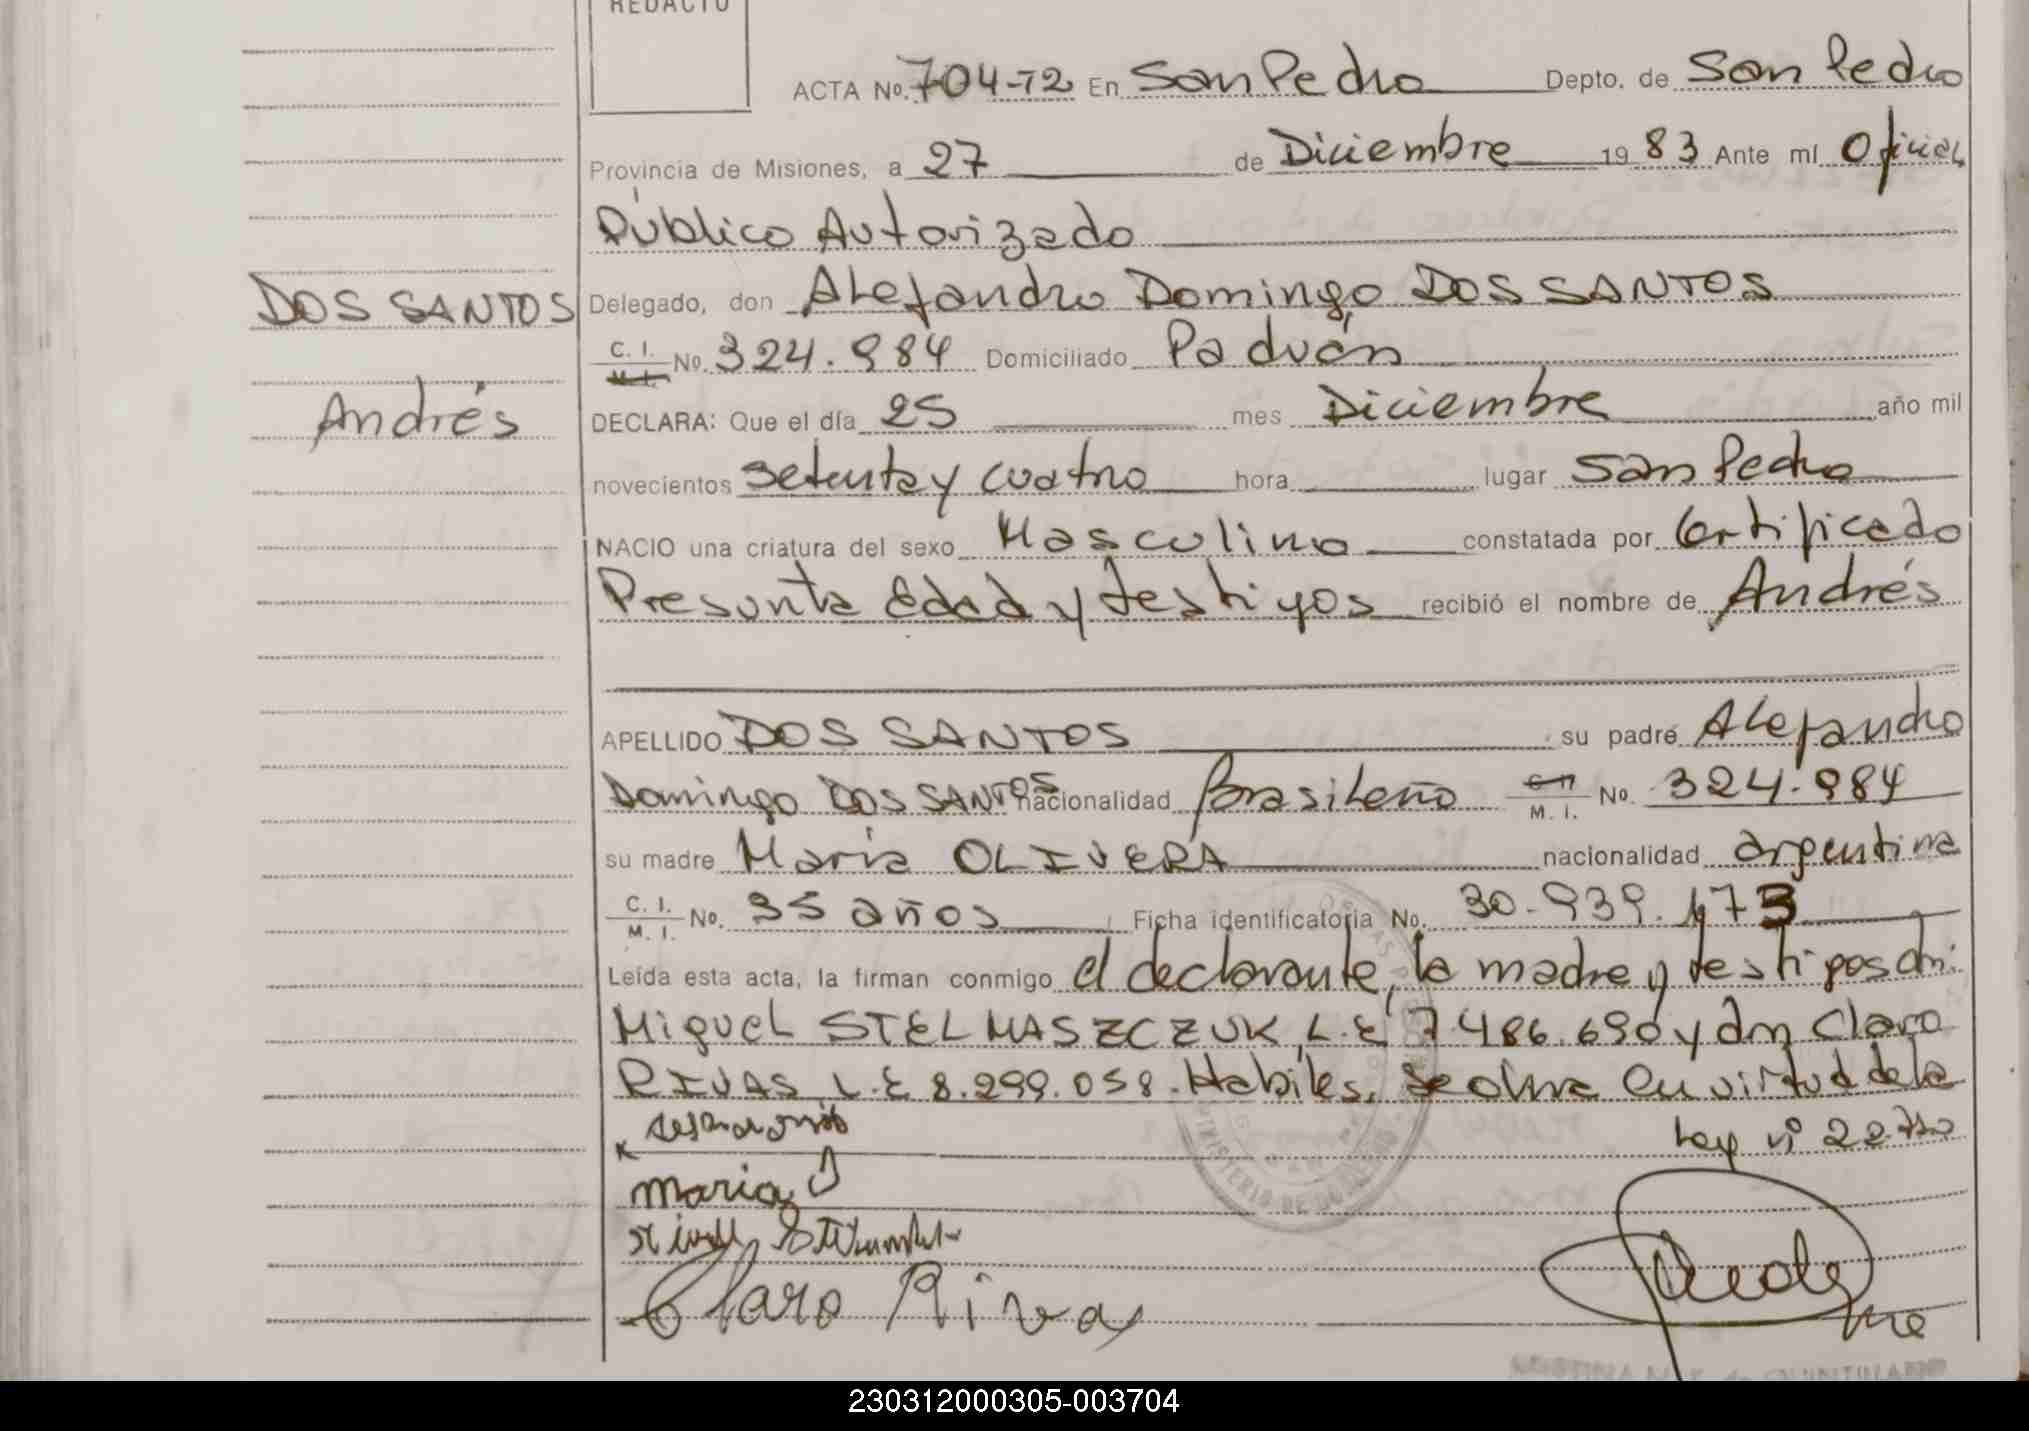 REDACTO
ACTA No. 704-T2 En San Pedro Depto. de San Pedro
Provincia de Misiones, a 27 de Diciembre 19 83 Ante mí Oficial
Público Autorizado
DOS SANTOS Delegado, don Alejandro Domingo DOS SANTOS
C. I. M. I. No. 324.984 Domiciliado Paduán
Andrés DECLARA: Que el día 25 mes Diciembre año mil
novecientos setenta y cuatro hora lugar San Pedro
NACIO una criatura del sexo Masculino constatada por Certificado
Presunta Edad y testigos recibió el nombre de Andrés
APELLIDO DOS SANTOS su padre Alejandro
Domingo DOS SANTOS nacionalidad Brasileño M. I. No. 324.984
su madre María OLIVERA nacionalidad argentina
C. I. M. I. No. 35 años Ficha identificatoria No. 30.939.173
Leída esta acta, la firman conmigo el declarante, la madre y testigos don:
Miguel STELMASZCZUK, L.E 7.486.690 y don Claro
RIVAS L.E 8.299.058. Habiles. Se labra en virtud de la
Ley nº
maria
Claro Rivas
MINISTERIO DE GOBIERNO
QUINTILIANO
230312000305-003704